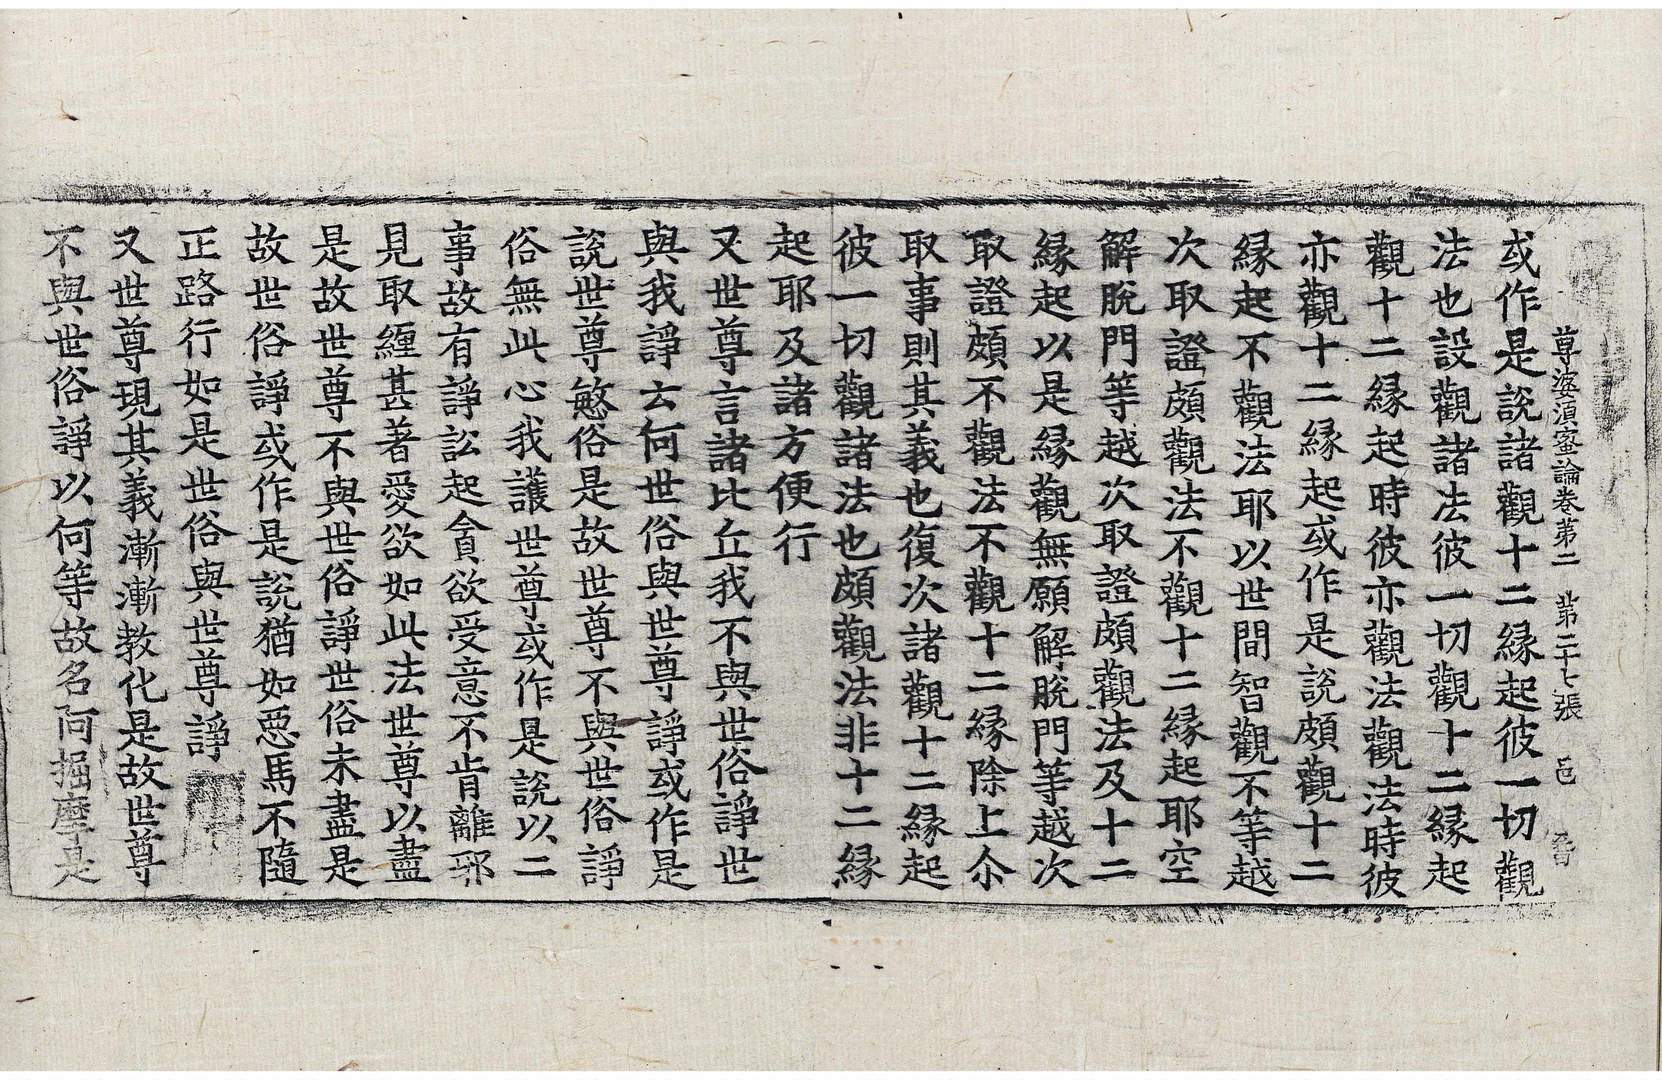 尊婆湏蜜論卷第二　第二十七張　邑
或作是説諸觀十二縁起彼一切觀
法也設觀諸法彼一切觀十二縁起
觀十二縁起時彼亦觀法觀法時彼
亦觀十二縁起或作是説頗觀十二
縁起不觀法耶以世間智觀不等越
次取證頗觀法不觀十二縁起耶空
解脫門等越次取證頗觀法及十二
縁起以是縁觀無願解脫門等越次
取證頗不觀法不觀十二縁除上尒
取事則其義也復次諸觀十二縁起
彼一切觀諸法也頗觀法非十二縁
起耶及諸方便行
又世尊言諸比丘我不與世俗諍世
與我諍云何世俗與世尊諍或作是
説世尊慜俗是故世尊不與世俗諍
俗無此心我護世尊或作是説以二
事故有諍訟起貪欲受意不肯離邪
見取纏甚著愛欲如此法世尊以盡
是故世尊不與世俗諍世俗未盡是
故世俗諍或作是説猶如惡馬不隨
正路行如是世俗與世尊諍
又世尊現其義漸漸教化是故世尊
不與世俗諍以何等故名阿掘摩是